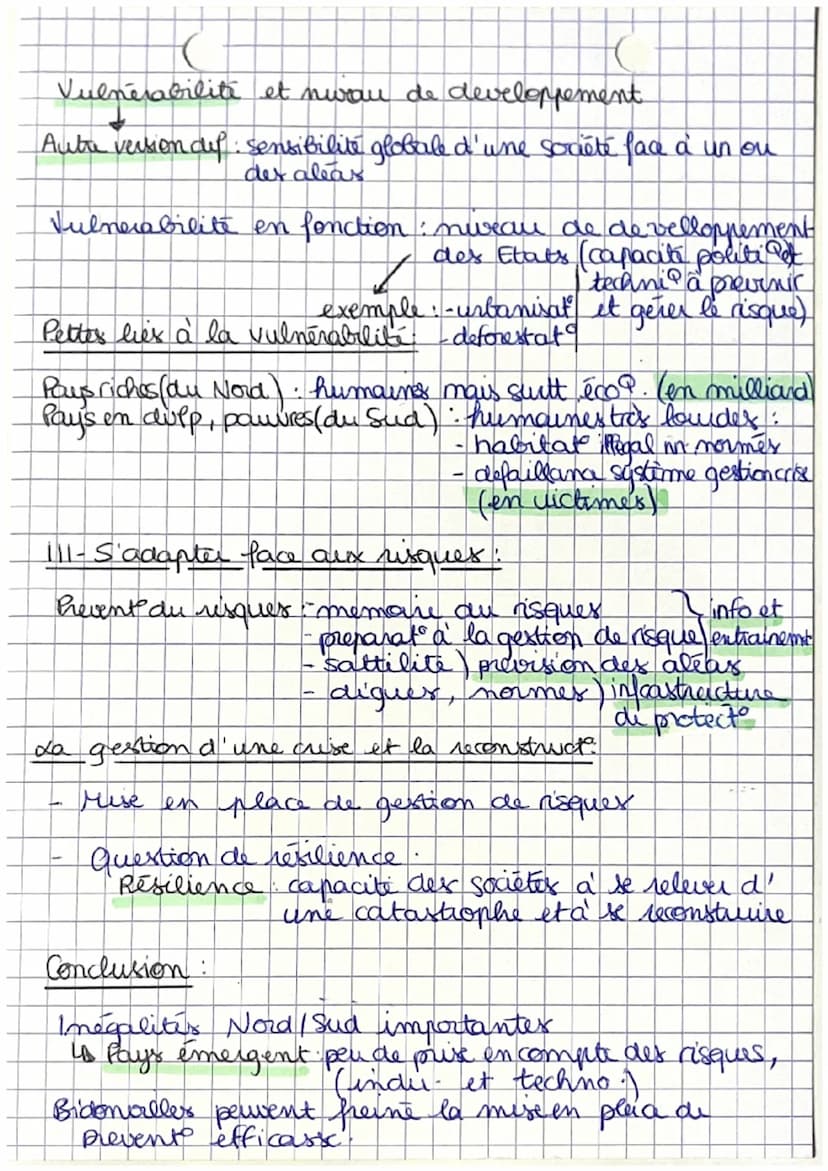 Vulnérabilité et niveau de developpement
Autre version def : sensibilité globale d'une société face à un ou
des aléas
Vulnerabilité en fonction : niveau de develloppement
des Etats (capacité politiQ et
techniQ à prevenir
exemple : - urbanisat° et gérer le risque)
Pertes liés à la vulnérabilité : - deforestat°
Pays riches (du Nord) : humaines mais surtt écoQ. (en milliard)
Pays en dvlp, pauvres (du Sud) : humaines très lourdes :
- habitat illégal nn normés
- defaillance système gestion crise
(en victimes)
III- S'adapter face aux risques :
Prevent° du risques : - memoire du risques } info et
- preparat° à la gestion de risque } entrainemt
- sattilité ) prévision des aléas
- digues, normes ) infrastructure
de protect°
La gestion d'une crise et la reconstruct° :
- Mise en place de gestion de risques
- Question de résilience .
Résilience : capacité des sociétés à se relever d'
une catastrophe et à se reconstruire
Conclusion :
Inégalités Nord / Sud importantes
↳ Pays émergent : peu de prise en compte des risques,
(indu. et techno.)
Bidonvilles peuvent freiné la mise en place de
prevent° efficasse.